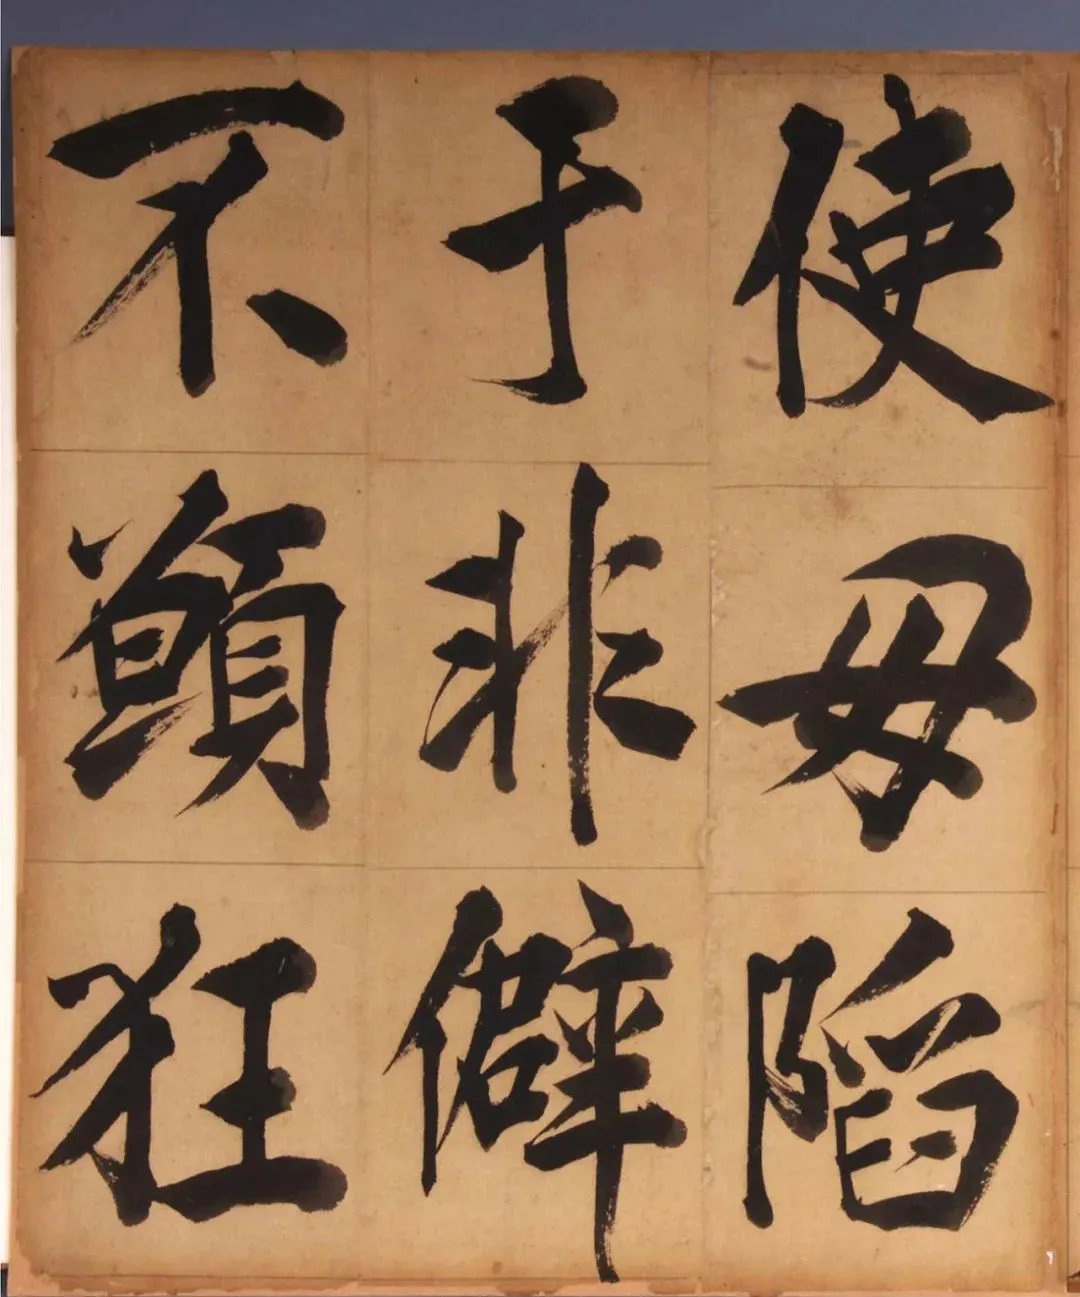 使毋陷
于非僻
不願狂